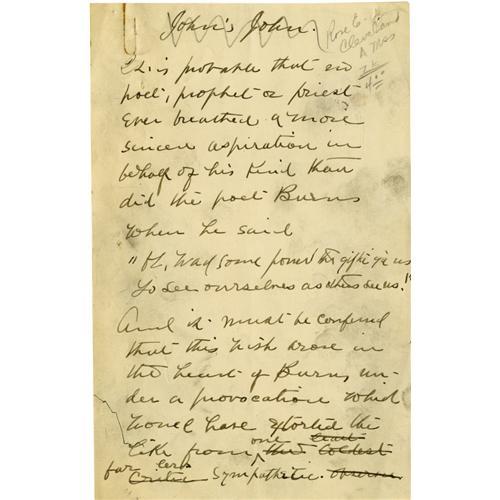 John's John.
Rose E.
Cleveland
A Mss
It is probable that no
poet, prophet or priest
Ever breathed a more
sincere aspiration in
behalf of his kind than
did the poet Burns
When he said
"Oh, wad some power the giftie gie us
To see ourselves as others see us."
And it must be confessed
that this wish arose in
the heart of Burns, un-
der a provocation which
would have extorted the
like from one
far less sympathetic.